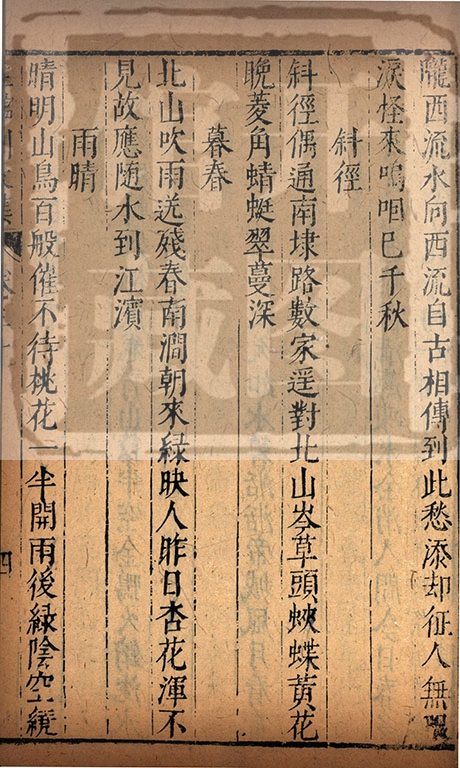 隴西流水向西流自古相傳到此愁添却征人無限
淚怪來嗚咽巳千秋
斜徑
斜徑偶通南埭路數家遥對北山岑草頭蛺蝶黄花
晩菱角蜻蜓翠蔓深
暮春
北山吹雨送殘春南澗朝來緑映人昨日杏花渾不
見故應随水到江濱
雨晴
晴明山鳥百般催不待桃花一半開雨後緑陰空繞
四